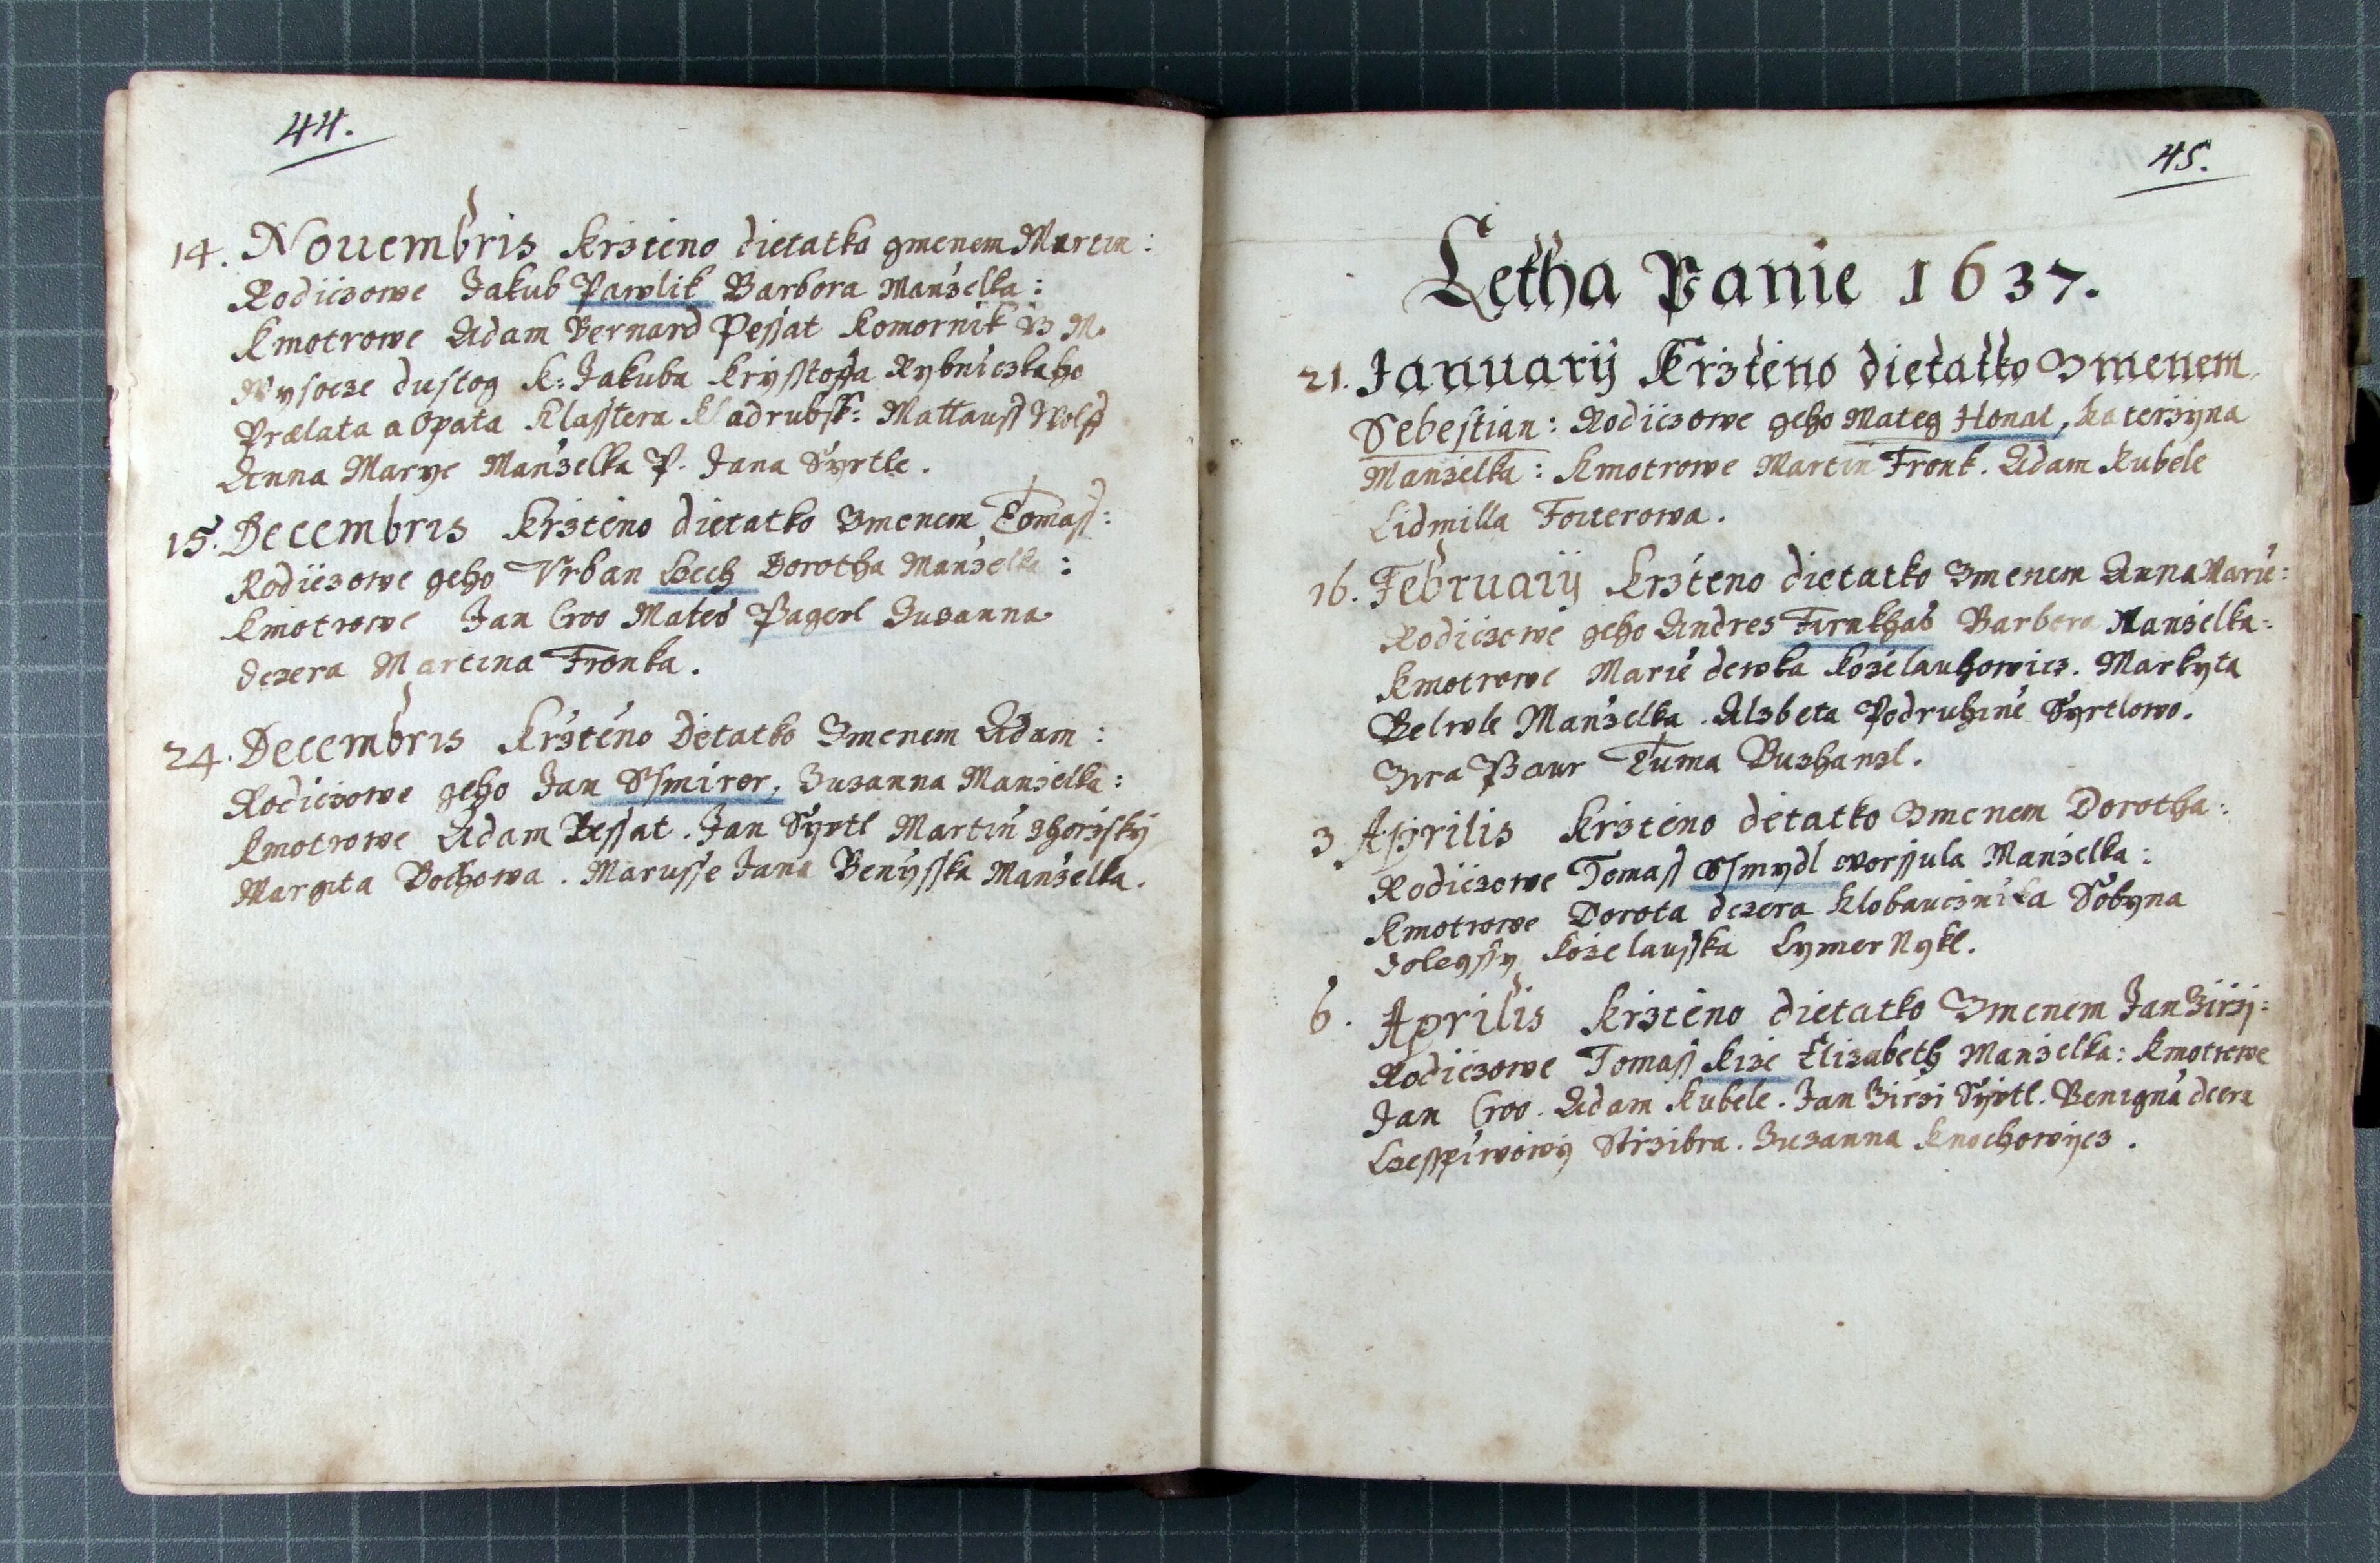 44.
14. Nouembris krzteno dietatko gmenem Martin:
Rodiczowe Jakub Pawlik Barbora Manzelka:
Kmotrowe Adam Bernard Pessat Komornik V M.
Wysocze dustog k: Jakuba Krysstoffa Rybniczkeho
Prælata a Opata Klasstera Kladrubsk: Mattauss Wolff
Anna Marye Manzelka P. Jana Syrtle.
15. Decembris krzteno dietatko Zmenem Tomass:
Rodiczowe geho Vrban Lech Dorotha Manzelka:
Kmotrowe Jan Croo Mates Pagerl Zuzanna
dczera Martina Fronka.
24. Decembris krzteno Detatko Zmenem Adam:
Rodiczowe geho Jan Ssmirer, Zuzanna Manzelka:
Kmotrowe Adam Pessat. Jan Syrtl Martin Zhorzsky
Margita Bochowa. Marusse Jana Benysska Manzelka.
45.
Letha Panie 1637.
21. Januarij Krzteno dietatko Zmenem
Sebestian: Rodiczowe geho Mateg Honal, Katerzyna
Manzelka: Kmotrowe Martin Fronk. Adam Kubele
Lidmilla Foiterowa.
16. Februarij krzteno dietatko Zmenem Anna Marie:
Rodiczowe geho Andres Firnkhas Barbora Manzelka:
Kmotrowe Marie dewka Kozelauhowicz. Markyta
Belwle Manzelka. Alzbeta Podruhine Syrtlowo.
Zira Baur Tuma Buzhanzl.
3 Aprilis krzteno detatko Zmenem Dorotha:
Rodiczowe Tomass Ssmydl Worssula Manzelka:
Kmotrowe Dorota dczera Klobaucznika Sobyna
Kozelausska Lymer Nykl.
6. Aprilis krzteno dietatko Zmenem Jan Zirzj:
Rodiczowe Tomass Kize Elizabeth Manzelka: Kmotrowe
Jan Croo. Adam Kubele. Jan Zirzi Syrtl. Benigna dcera
Strzibra. Zuzanna Knochowycz.